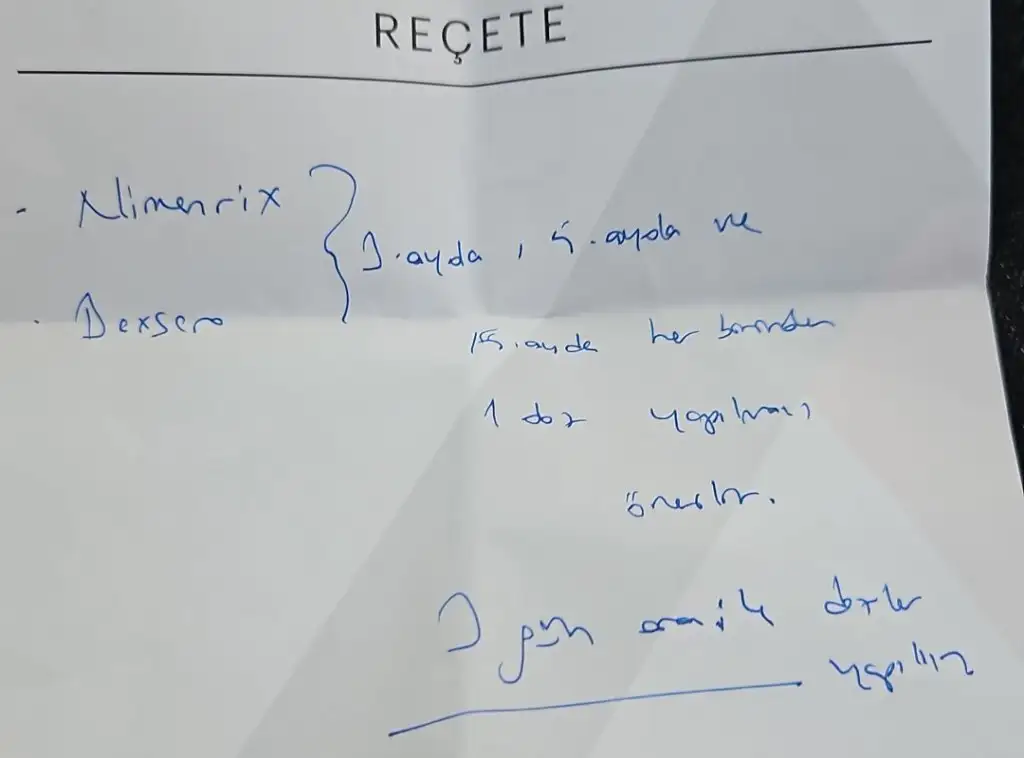 REÇETE
- Nimenrix
- Bexsero
ayda, 5. ayda ve
15. ayda her birinden
1 doz yapılması
önerilir.
gün ara ile dozlar
yapılır